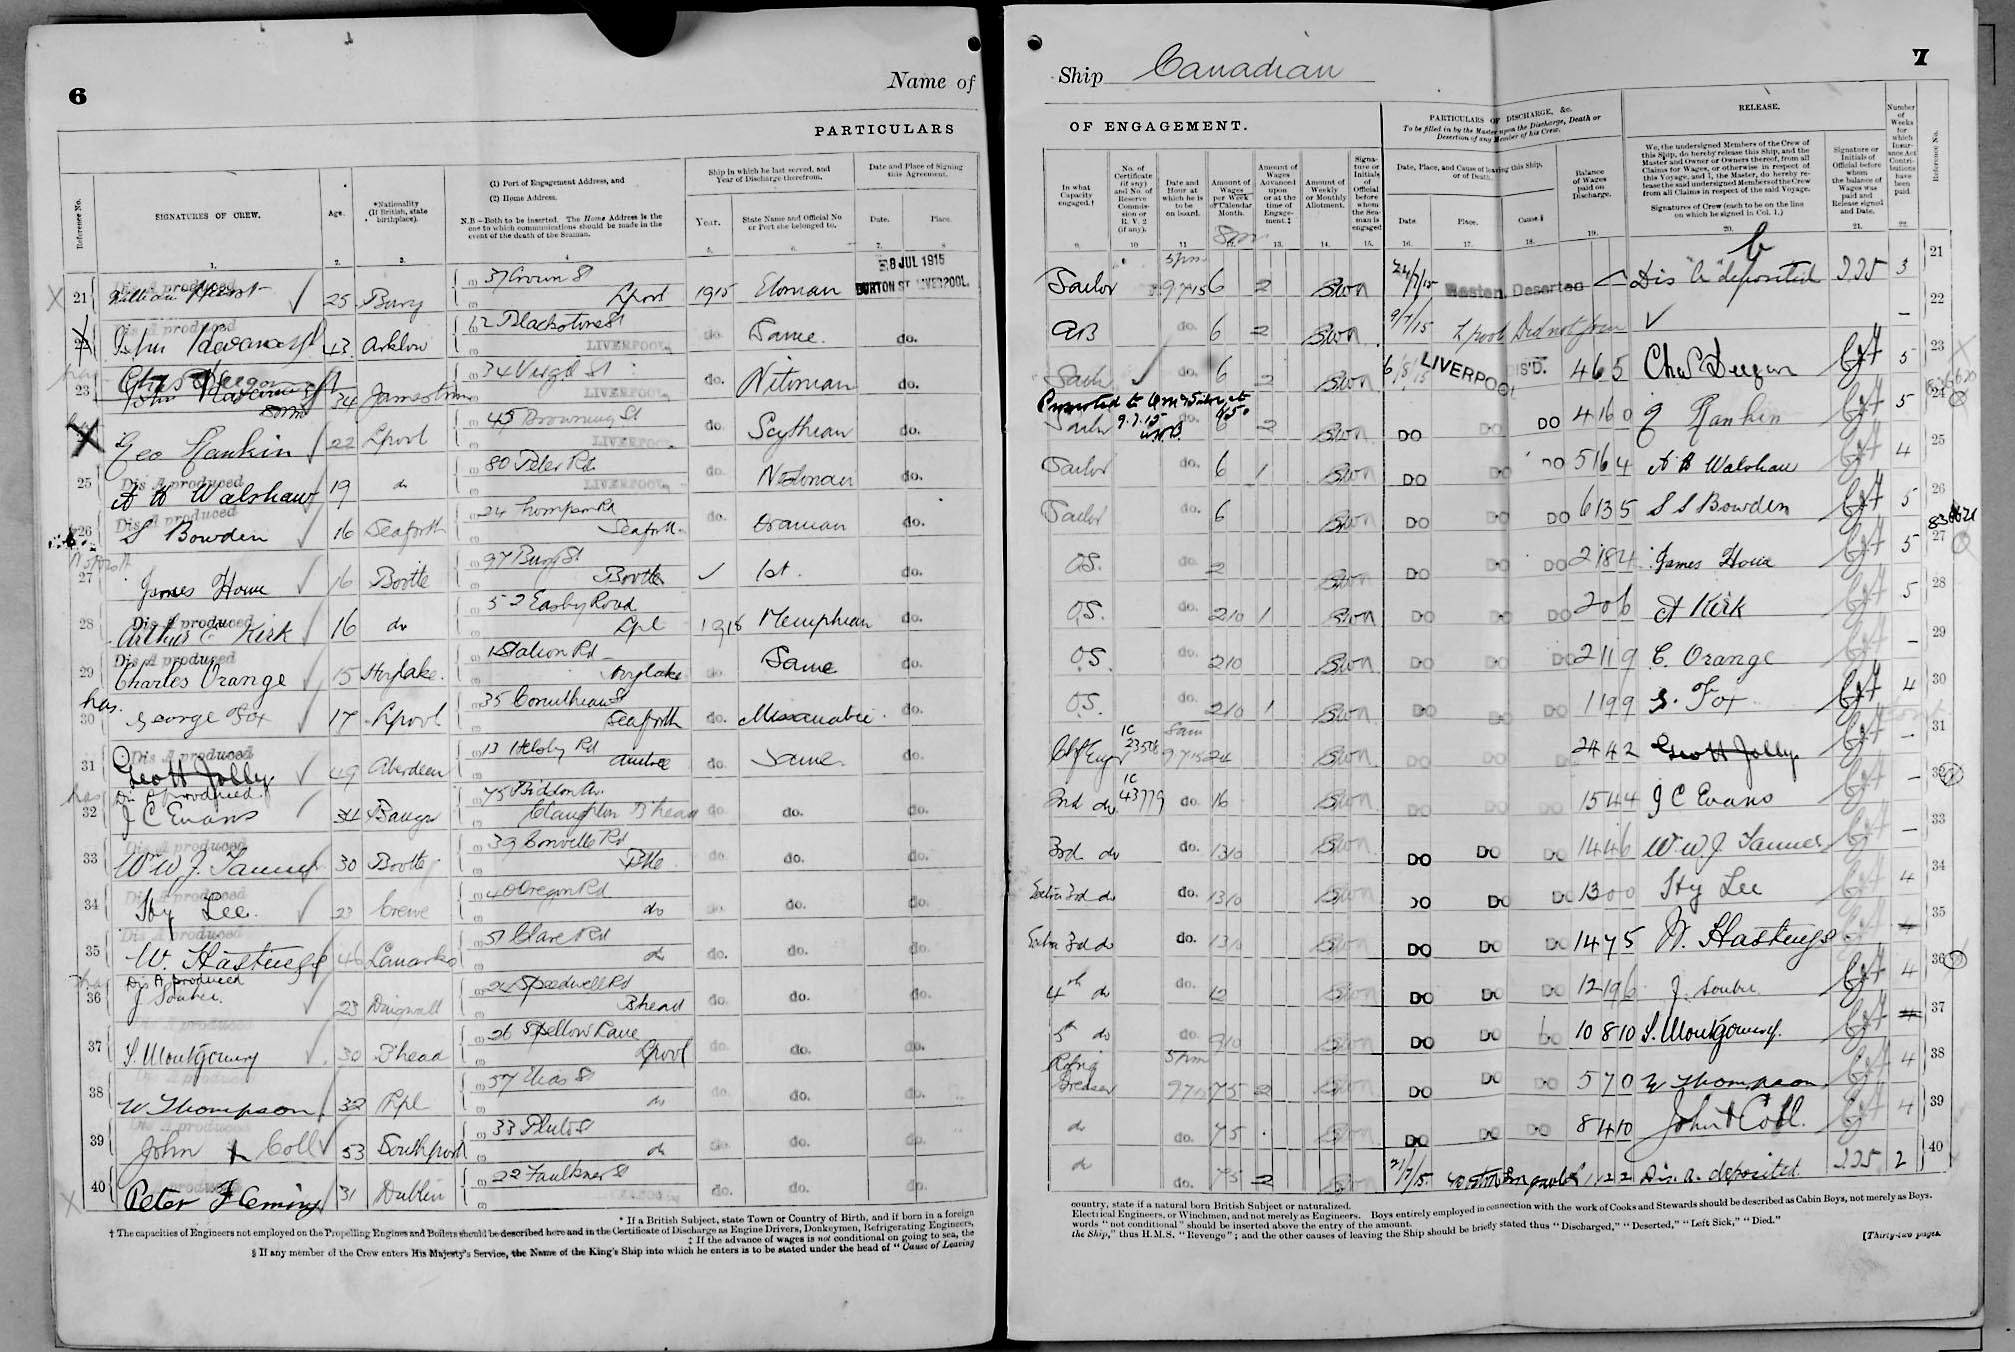 6
Name of
PARTICULARS
Reference No.
SIGNATURES OF CREW.
Age.
*Nationality
(If British, state
birthplace).
(1) Port of Engagement Address, and
(2) Home Address.
N.B—Both to be inserted. The Home Address is the
one to which communications should be made in the
event of the death of the Seaman.
Ship in which he last served, and
Year of Discharge therefrom.
Year.
State Name and Official No
or Port she belonged to.
Date and Place of Signing
this Agreement.
Date.
Place.
1.
2.
3.
4
5.
6.
7.
8
8 JUL 1915
BURTON ST LIVERPOOL.
21 Dis A produced William 25 Bury 37 Crown St Lpool 1915
Dis A produced John Kavanagh 43 Arklow 12 Blackstone St LIVERPOOL do. Same. do.
23 Chas Deegan 34 Jamestown 34 Virgil St LIVERPOOL do. do.
Geo Rankin 22 Lpool 45 Browning St LIVERPOOL do. Scythian do.
25 Dis A produced A H Walshaw 19 do 80 Peter Rd LIVERPOOL do. do.
26 Dis A produced S Bowden 16 Seaforth 24 Thompson Rd Seaforth do. do.
27 James Howe 16 Bootle 97 Bootle ✓ 1st. do.
28 Dis A produced Arthur C Kirk 16 do 52 Easby Road Lpl Memphian do.
29 Dis A produced Charles Orange 15 Hoylake. Station Rd Hoylake do. Same do.
30 George Fox 17 Lpool 35 Corinthian St Seaforth do. Missanabie. do.
31 Dis A produced Geo H Jolly 49 Aberdeen 13 Helsby Rd Aintree do. Same. do.
32 Dis A produced J C Evans 34 Bangor 75 Bidston Av. Claughton B'head do. do. do.
33 Dis A produced Wm W. J. Tanner 30 Bootle 39 Bonville Rd Btle do. do. do.
34 Dis A produced Hy Lee. Crewe 40 Oregon Rd do do. do. do.
35 Dis A produced W. Hastings 46 Lanarks 51 Clare Rd do do. do. do.
36 Dis A produced J Souter. 23 Dingwall 24 Speedwell Rd B'head do. do. do.
37 Dis A produced S. Montgomery 30 B'head 26 Spellow Lane Lpool do. do. do.
38 W Thompson 32 Lpl 57 Elias St do do. do. do.
39 Dis A produced John Coll 53 Southport 33 Pluto St do do. do. do.
40 Peter Fleming 31 Dublin 22 Faulkner St LIVERPOOL do. do. do.
* If a British Subject, state Town or Country of Birth, and if born in a foreign
† The capacities of Engineers not employed on the Propelling Engines and Boilers should be described here and in the Certificate of Discharge as Engine Drivers, Donkeymen, Refrigerating Engineers,
‡ If the advance of wages is not conditional on going to sea, the
§ If any member of the Crew enters His Majesty's Service, the Name of the King's Ship into which he enters is to be stated under the head of "Cause of Leaving
7
Ship Canadian
OF ENGAGEMENT.
PARTICULARS OF DISCHARGE, &c.
To be filled in by the Master upon the Discharge, Death or
Desertion of any Member of his Crew.
RELEASE.
In what
Capacity
engaged.†
No. of
Certificate
(if any)
and No. of
Reserve
Commis-
sion or
R. V. 2
(if any).
Date and
Hour at
which he is
to be
on board.
Amount of
Wages
per Week
or Calendar
Month.
Amount of
Wages
Advanced
upon
or at the
time of
Engage-
ment.‡
Amount of
Weekly
or Monthly
Allotment.
Signa-
ture or
Initials
of
Official
before
whom
the Sea-
man is
engaged
Date, Place, and Cause of leaving this Ship,
or of Death.
Date.
Place.
Cause.§
Balance
of Wages
paid on
Discharge.
We, the undersigned Members of the Crew of
this Ship, do hereby release this Ship, and the
Master and Owner or Owners thereof, from all
Claims for Wages, or otherwise in respect of
this Voyage, and I, the Master, do hereby re-
lease the said undersigned Members of the Crew
from all Claims in respect of the said Voyage.
Signatures of Crew (each to be on the line
on which he signed in Col. 1.)
Signature or
Initials of
Official before
whom
the balance of
Wages was
paid and
Release signed
and Date.
Number
of
Weeks
for
which
Insur-
ance Act
Contri-
butions
have
been
paid
Reference No.
9.
10
11
12.
13.
14.
15.
16.
17.
18.
19.
20.
21.
22.
Sailor 5 pm 9 7 15 6 2 Boston Deserted Dis "A" deposited 225 3 21
AB do. 6 2 9/7/15 Lpool Did not join ✓ – 22
Sailor ✓ do. 6 2 6/8/15 LIVERPOOL DIS'D. 4 6 5 Chas Deegan 5 23
Sailor 9.7.15 6 2 DO DO DO 4 16 0 G Rankin 5 24
Sailor do. 6 1 DO DO DO 5 16 4 A H Walshaw 4 25
Sailor do. 6 DO DO DO 6 13 5 S S Bowden 5 26
O.S. do. 2 DO DO DO 2 18 4 James Howe 5 27
O.S. do. 2 10 1 DO DO DO 2 0 6 A Kirk 5 28
O.S. do. 2 10 DO DO DO 2 11 9 C. Orange – 29
O.S. do. 2 10 1 DO DO DO 1 19 9 G. Fox 4 30
Chf Engr 9 7 15 24 DO DO DO 24 4 2 Geo H Jolly – 31
2nd do 43779 do. 16 DO DO DO 15 4 4 J C Evans – 32
3rd do do. 13 10 DO DO DO 14 4 6 W W J Tanner – 33
Extra 3rd do do. 13 10 DO DO DO 13 0 0 Hy Lee 4 34
Extra 3rd do do. 13 10 DO DO DO 14 7 5 W. Hastings 35
4th do do. 12 DO DO DO 12 19 6 J. Souter 4 36
5th do do. 9 10 DO DO DO 10 8 10 S. Montgomery. 37
Greaser 5 pm 9 7 15 7 5 2 DO DO DO 5 7 0 W Thompson 4 38
do do. 7 5 DO DO DO 8 4 10 John Coll. 4 39
do do. 7 5 2 21/7/15 1 2 2 Dis. A. deposited 225 2 40
country, state if a natural born British Subject or naturalized.
Electrical Engineers, or Winchmen, and not merely as Engineers. Boys entirely employed in connection with the work of Cooks and Stewards should be described as Cabin Boys, not merely as Boys.
words "not conditional" should be inserted above the entry of the amount.
the Ship," thus H.M.S. "Revenge"; and the other causes of leaving the Ship should be briefly stated thus "Discharged," "Deserted," "Left Sick," "Died."
[Thirty-two pages.